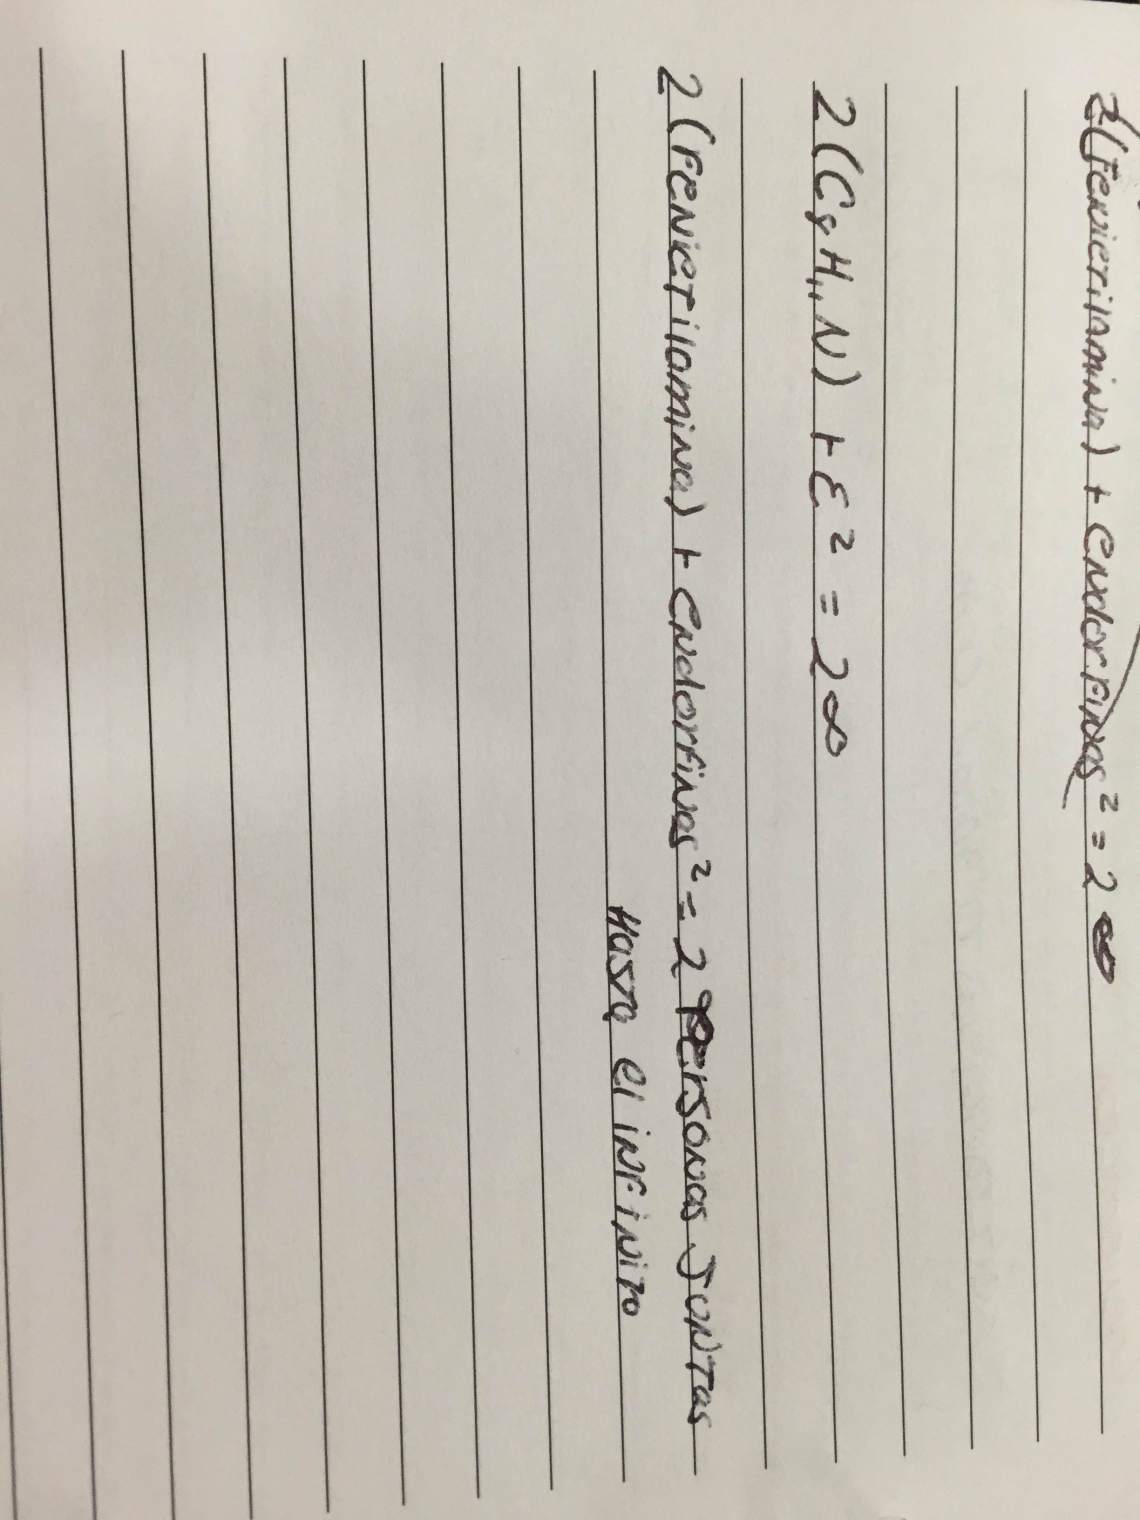 2(Feniletilamina) + endorfinas² = 2 ∞
2(C₈H₁₁N) + E² = 2∞
2(Fenietilamina) + endorfinas² = 2 Personas Juntas
Hasta el infinito